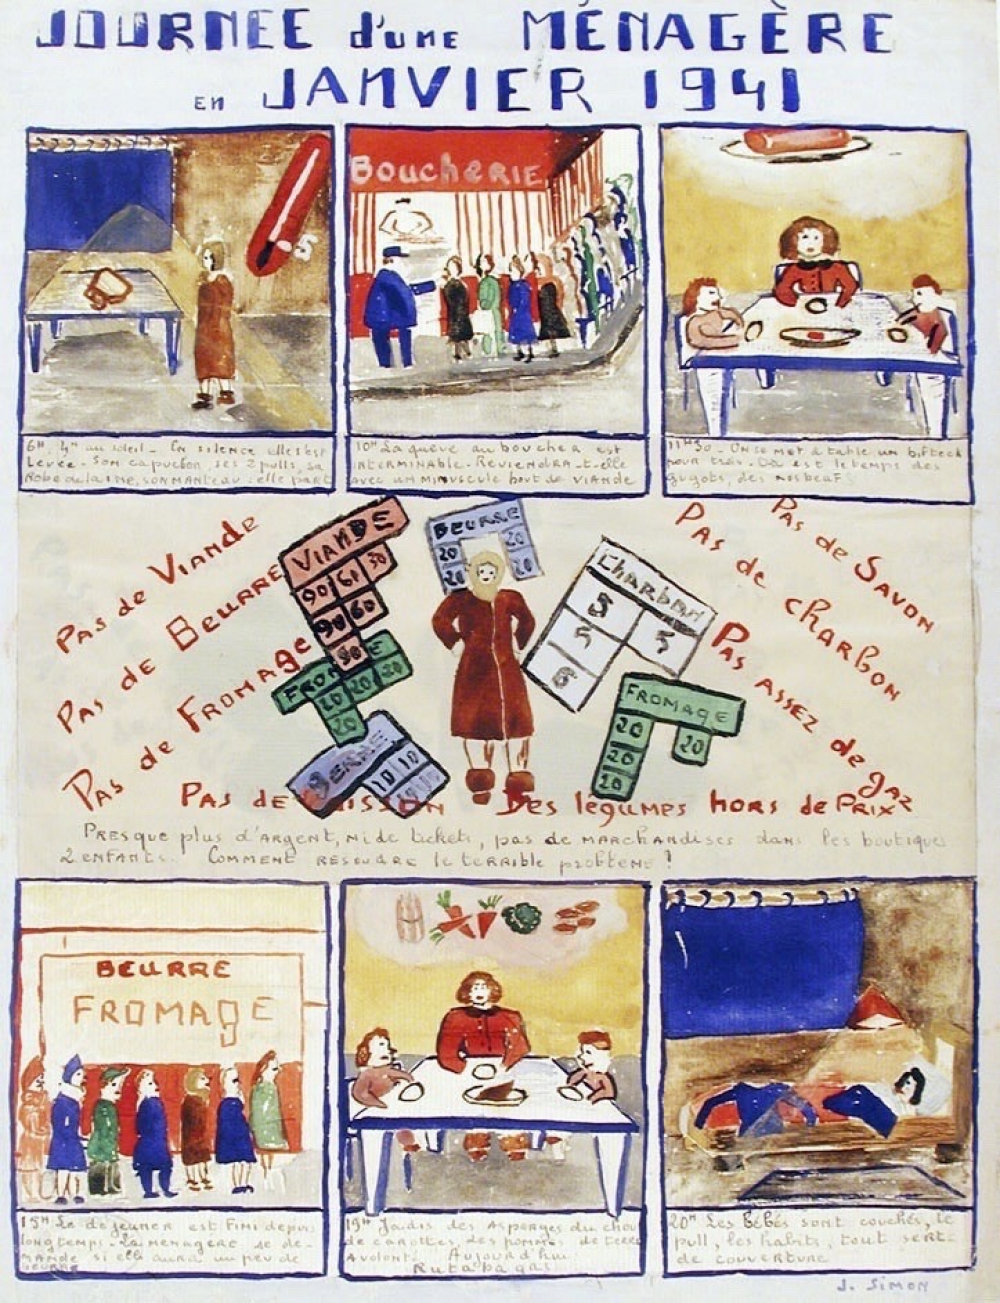 JOURNEE d'une MÉNAGÈRE
EN JANVIER 1941
5
BoucheRIE
6H, 4H au soleil - En silence elle s'est
Levée - Son capuchon, ses 2 pulls, sa
Robe de laine, son manteau: elle part
10H La queue au boucher est
interminable - Reviendra-t-elle
avec un minuscule bout de viande
11H30 - On se met à table un bifteck
pour trois - Où est le temps des
gigots, des rosbeafs
Pas de Viande
Pas de Beurre
Pas de Fromage
VIANDE
90 60 30
90 60
90
BEURRE
20 20
20 20
Charbon
5 5
5
6
Pas de Savon
Pas de charbon
Pas assez de gaz
FROMAGE
20 20
20
20
20 20 20
20
10 10
Pas de Des légumes hors de Prix
Presque plus d'argent, ni de tickets, pas de marchandises dans les boutiques
2 enfants. Comment resoudre le terrible problème!
BEURRE
FROMAGE
15H Le dejeuner est fini depuis
longtemps - La menagere se de-
mande si elle aura un peu de
beurre
19H Jadis des Asperges du chou
de carottes, des pommes de terre
a volonté. Aujourd'hui
Rutabagas
20H Les bébés sont couchés, le
pull, les habits, tout sert
de couverture
J. Simon